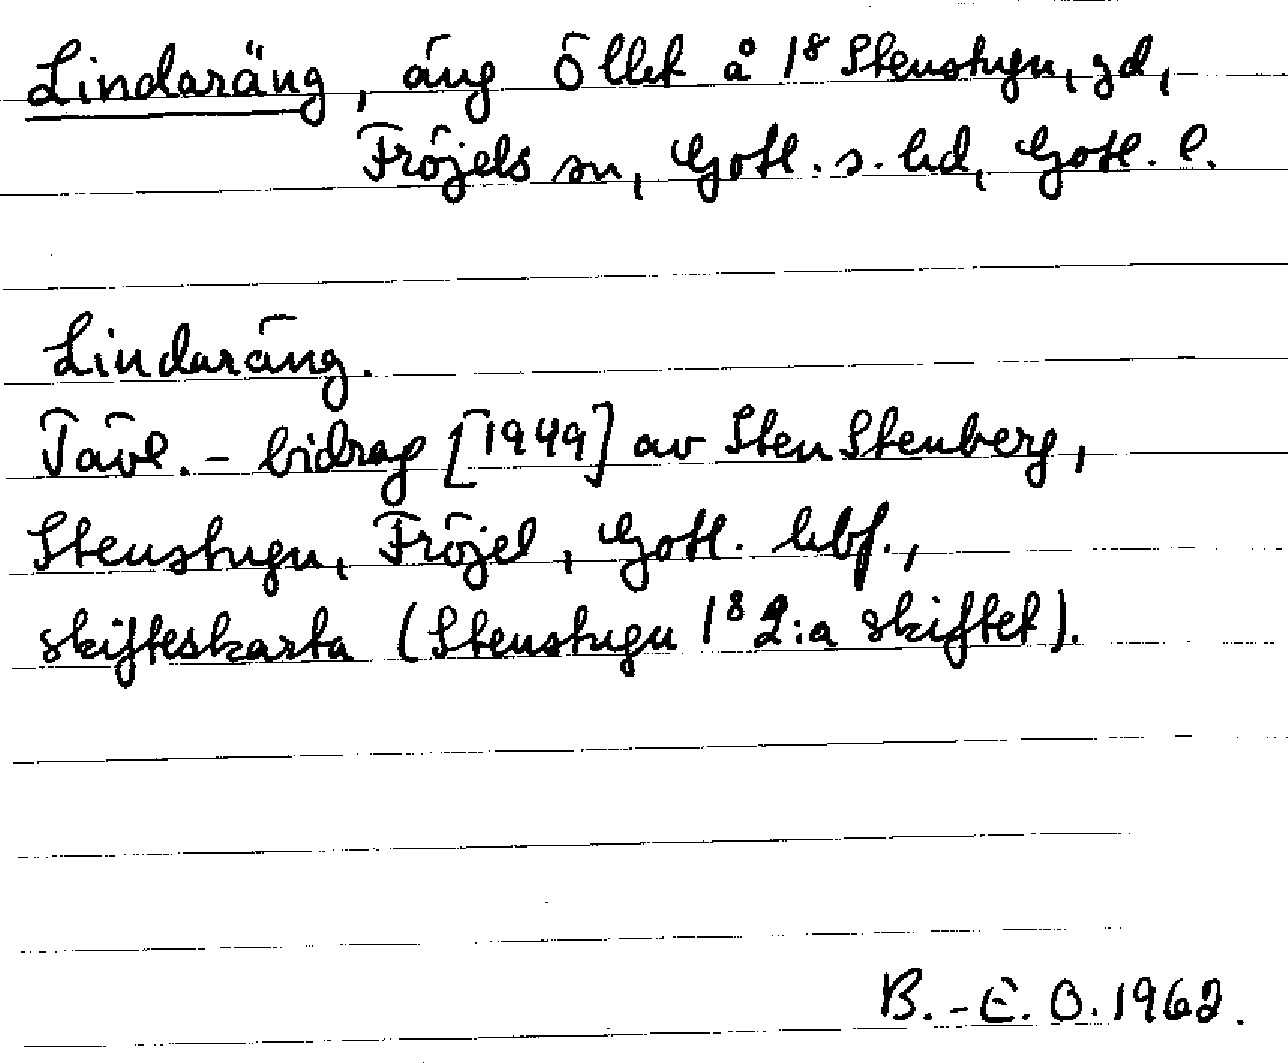 Lindaräng, äng Ö llet å 1⁸ Stenstugu, gd,
Fröjels sn, Gotl. s. hd, Gotl. l.
Lindaräng.
Tävl.- bidrag [1949] av Sten Stenberg,
Stenstugu, Fröjel, Gotl. hbf.,
skifteskarta (Stenstugu 1⁸ 2:a skiftet).
B.-E. O. 1962.